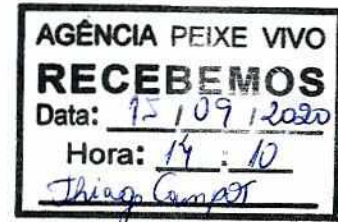 AGÊNCIA PEIXE VIVO
RECEBEMOS
Data: 15 / 09 / 2020
Hora: 14 : 10
Thiago Campos